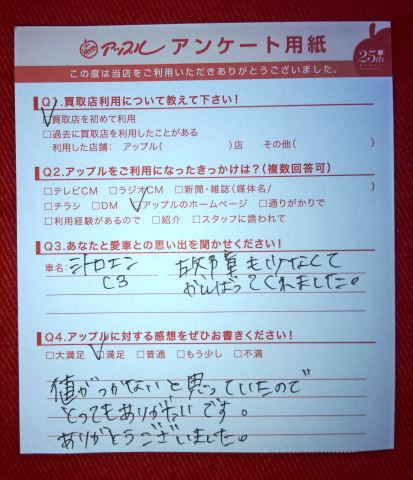 アップル アンケート用紙
25th
この度は当店をご利用いただきありがとうございました。
Q1.買取店利用について教えて下さい!
□買取店を初めて利用
□過去に買取店を利用したことがある
利用した店舗: アップル( )店 その他( )
Q2.アップルをご利用になったきっかけは?(複数回答可)
□テレビCM □ラジオCM □新聞・雑誌(媒体名/ )
□チラシ □DM □アップルのホームページ □通りがかりで
□利用経験があるので □紹介 □スタッフに誘われて
Q3.あなたと愛車との思い出を聞かせてください!
車名: シトロエン 故障も少なくて
C3 がんばってくれました。
Q4.アップルに対する感想をぜひお書きください!
□大満足 □満足 □普通 □もう少し □不満
値がつかないと思っていたので
とってもありがたいです。
ありがとうございました。